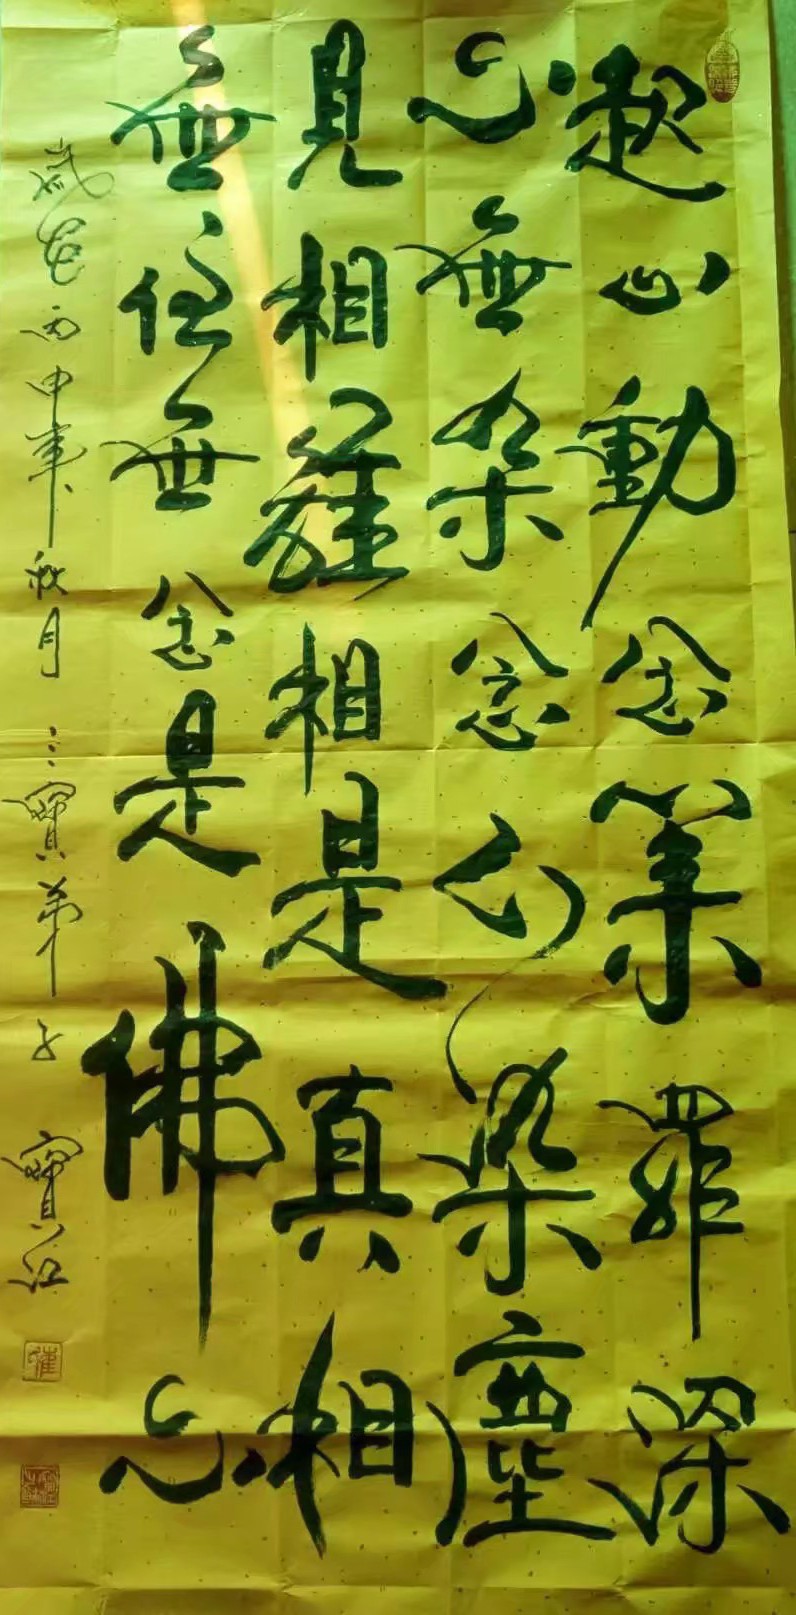 起心動念業罪深
心無染念不染塵
見相離相是真相
無住無念是佛心
歲在丙申年秋月 三寶弟子 寶江
崔